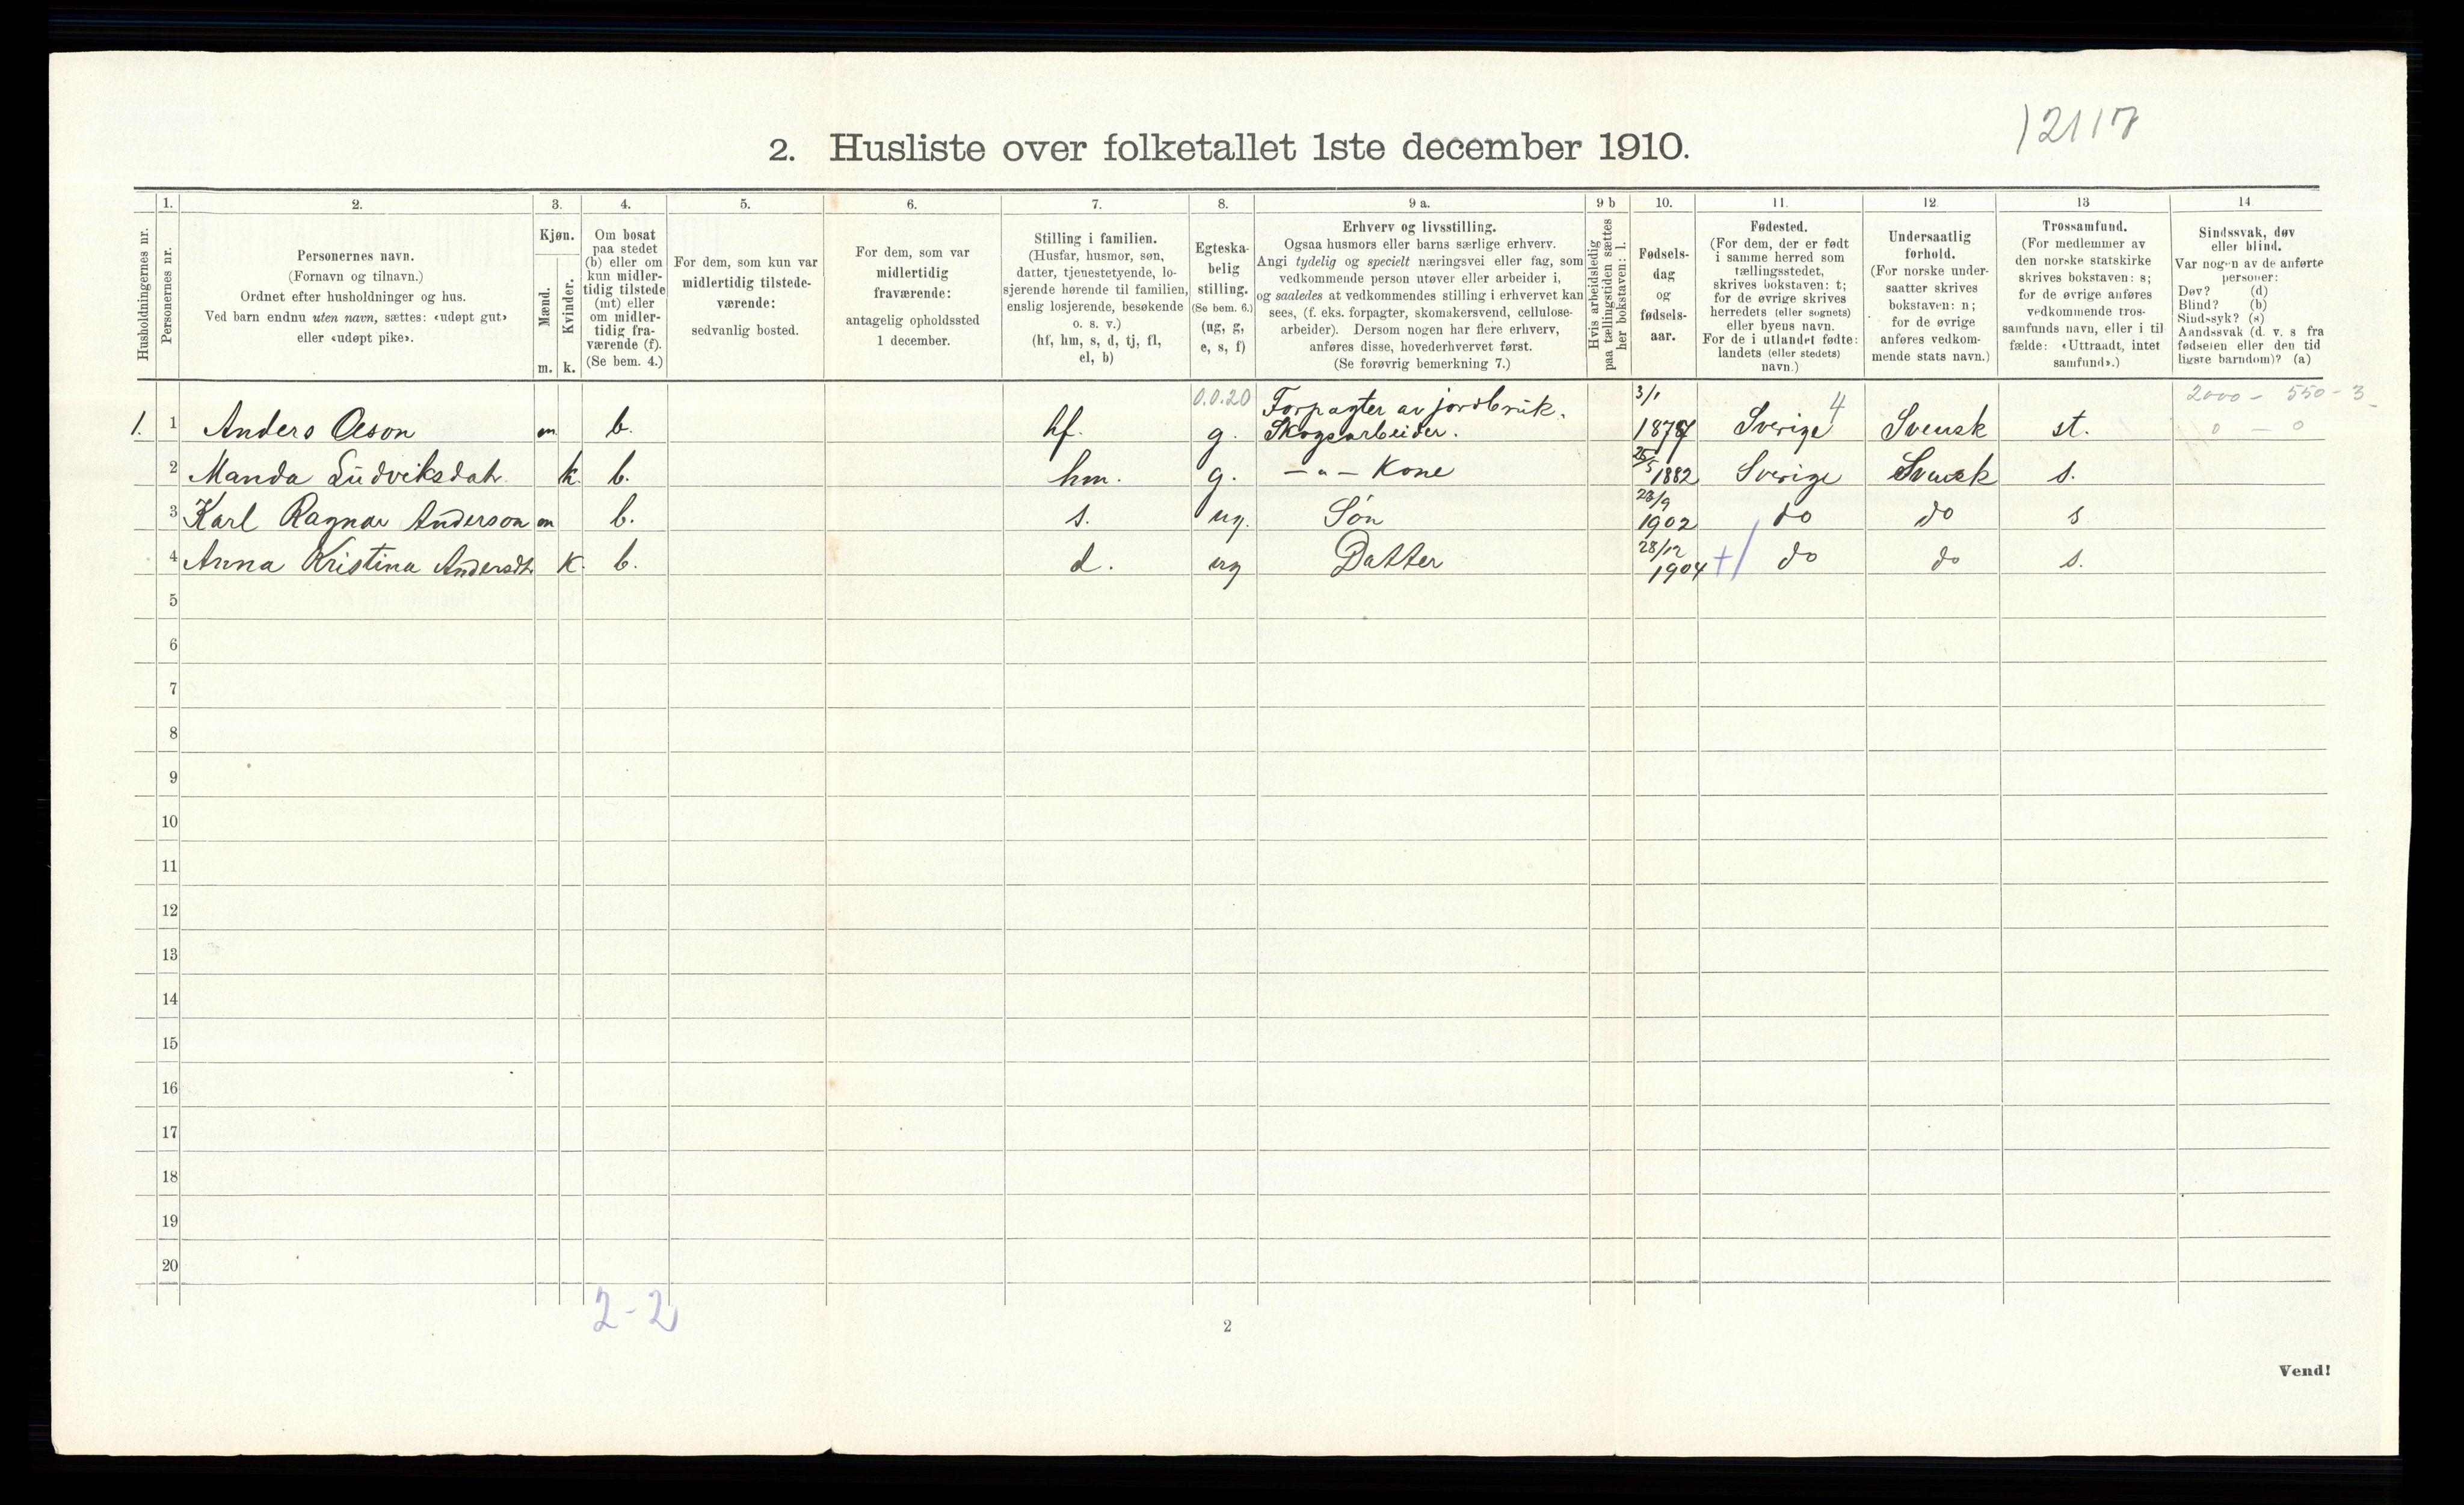 12117
2. Husliste over folketallet 1ste december 1910.
Husholdningernes nr.
1.
Personernes nr.
2.
Personernes navn.
(Fornavn og tilnavn.)
Ordnet efter husholdninger og hus.
Ved barn endnu uten navn, sættes: «udøpt gut»
eller «udøpt pike».
3.
Kjøn.
Mænd.
Kvinder.
m. k.
4.
Om bosat
paa stedet
(b) eller om
kun midler-
tidig tilstede
(mt) eller
om midler-
tidig fra-
værende (f).
(Se bem. 4.)
5.
For dem, som kun var
midlertidig tilstede-
værende:
sedvanlig bosted.
6.
For dem, som var
midlertidig
fraværende:
antagelig opholdssted
1 december.
7.
Stilling i familien.
(Husfar, husmor, søn,
datter, tjenestetyende, lo-
sjerende hørende til familien,
enslig losjerende, besøkende
o. s. v.)
(hf, hm, s, d, tj, fl,
el, b)
8.
Egteska-
belig
stilling.
(Se bem. 6.)
(ug, g,
e, s, f)
9 a.
Erhverv og livsstilling.
Ogsaa husmors eller barns særlige erhverv.
Angi tydelig og specielt næringsvei eller fag, som
vedkommende person utøver eller arbeider i,
og saaledes at vedkommendes stilling i erhvervet kan
sees, (f. eks. forpagter, skomakersvend, cellulose-
arbeider). Dersom nogen har flere erhverv,
anføres disse, hovederhvervet først.
(Se forøvrig bemerkning 7.)
9 b
Hvis arbeidsledig
paa tællingstiden sættes
her bokstaven: l.
10.
Fødsels-
dag
og
fødsels-
aar.
11.
Fødested.
(For dem, der er født
i samme herred som
tællingsstedet,
skrives bokstaven: t;
for de øvrige skrives
herredets (eller sognets)
eller byens navn.
For de i utlandet fødte:
landets (eller stedets)
navn.)
12.
Undersaatlig
forhold.
(For norske under-
saatter skrives
bokstaven: n;
for de øvrige
anføres vedkom-
mende stats navn.)
13
Trossamfund.
(For medlemmer av
den norske statskirke
skrives bokstaven: s;
for de øvrige anføres
vedkommende tros-
samfunds navn, eller i til
fælde: «Uttraadt, intet
samfund».)
14
Sindssvak, døv
eller blind.
Var nogen av de anførte
personer:
Døv? (d)
Blind? (b)
Sindssyk? (s)
Aandssvak (d. v. s fra
fødselen eller den tid
ligste barndom)? (a)
0.0.20 Forpagter av jordbruk. 3/1 4 2000 - 550 - 3
1. 1 Anders Oeson m b. hf. g. Skogsarbeider. 1877 Sverige Svensk st. 0 - 0
2 Manda Ludviksdatr. k. b. hm. g. - " - Kone 25/5 1882 Sverige Svensk s.
3 Karl Ragnar Anderson m b. s. ug. Søn 23/9 1902 do do s
4 Anna Kristina Andersdt. k. b. d. ug Datter 28/12 1904 + do do s.
5
6
7
8
9
10
11
12
13
14
15
16
17
18
19
20
2-2
2
Vend!